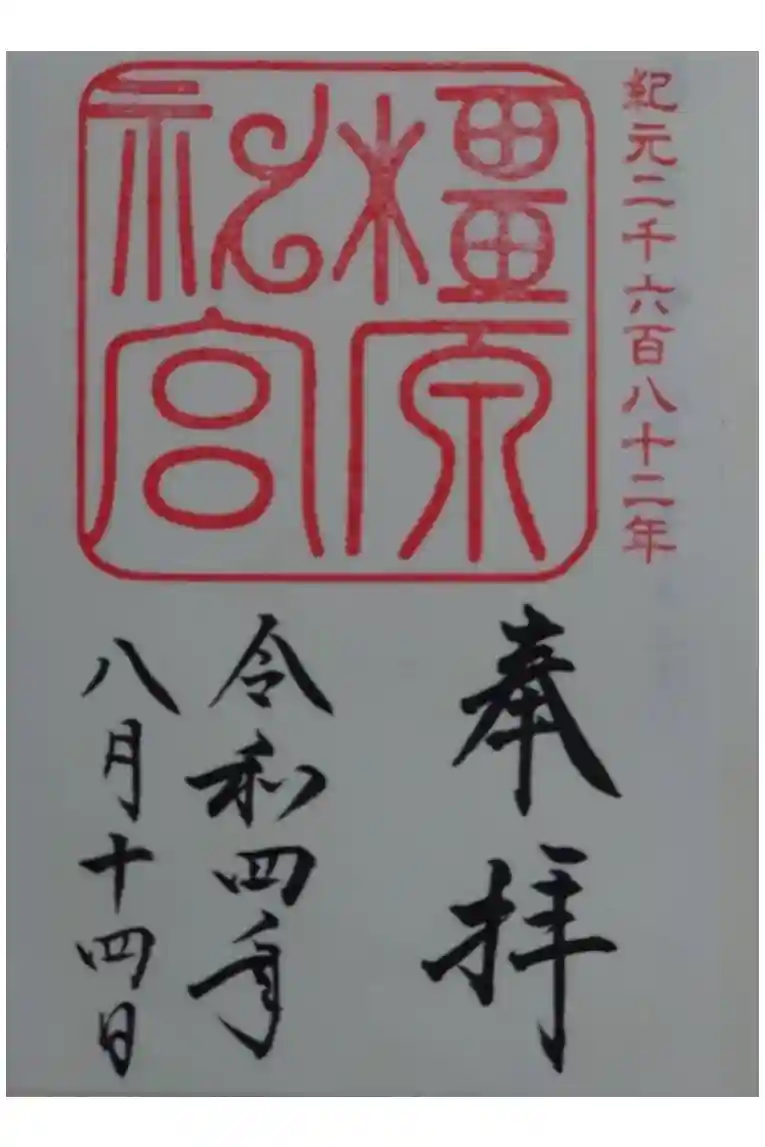 紀元二千六百八十二年
橿原
神宮
奉拝
令和四年
八月十四日